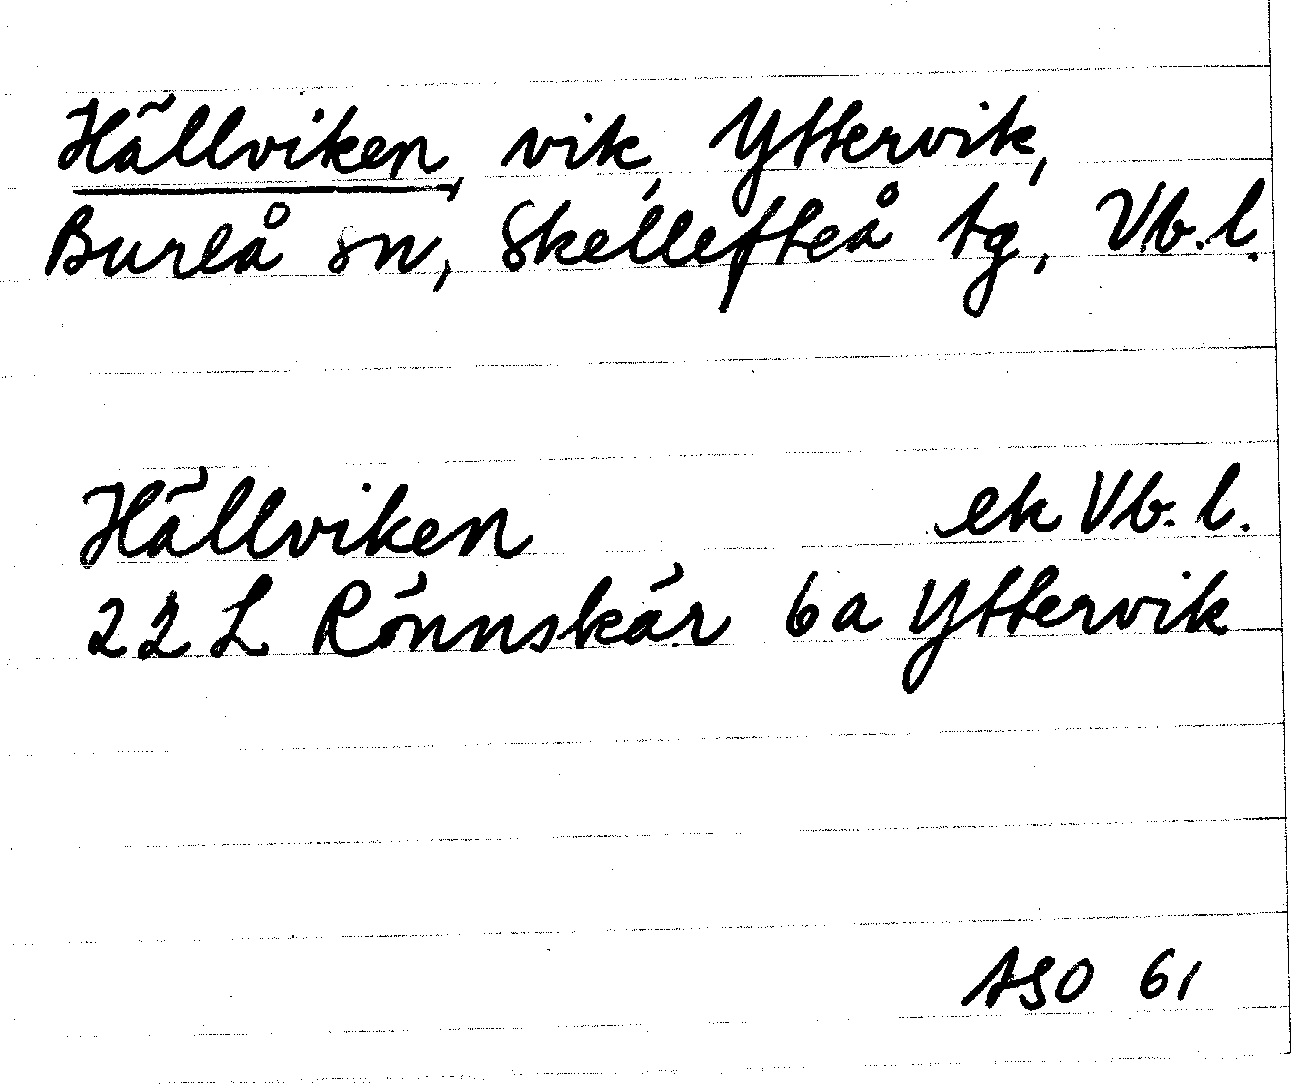 Hällviken, vik, Yttervik,
Bureå sn, Skellefteå tg, Vb.l.
Hällviken ek Vb. l.
22 L Rönnskär 6a Yttervik
ASO 61